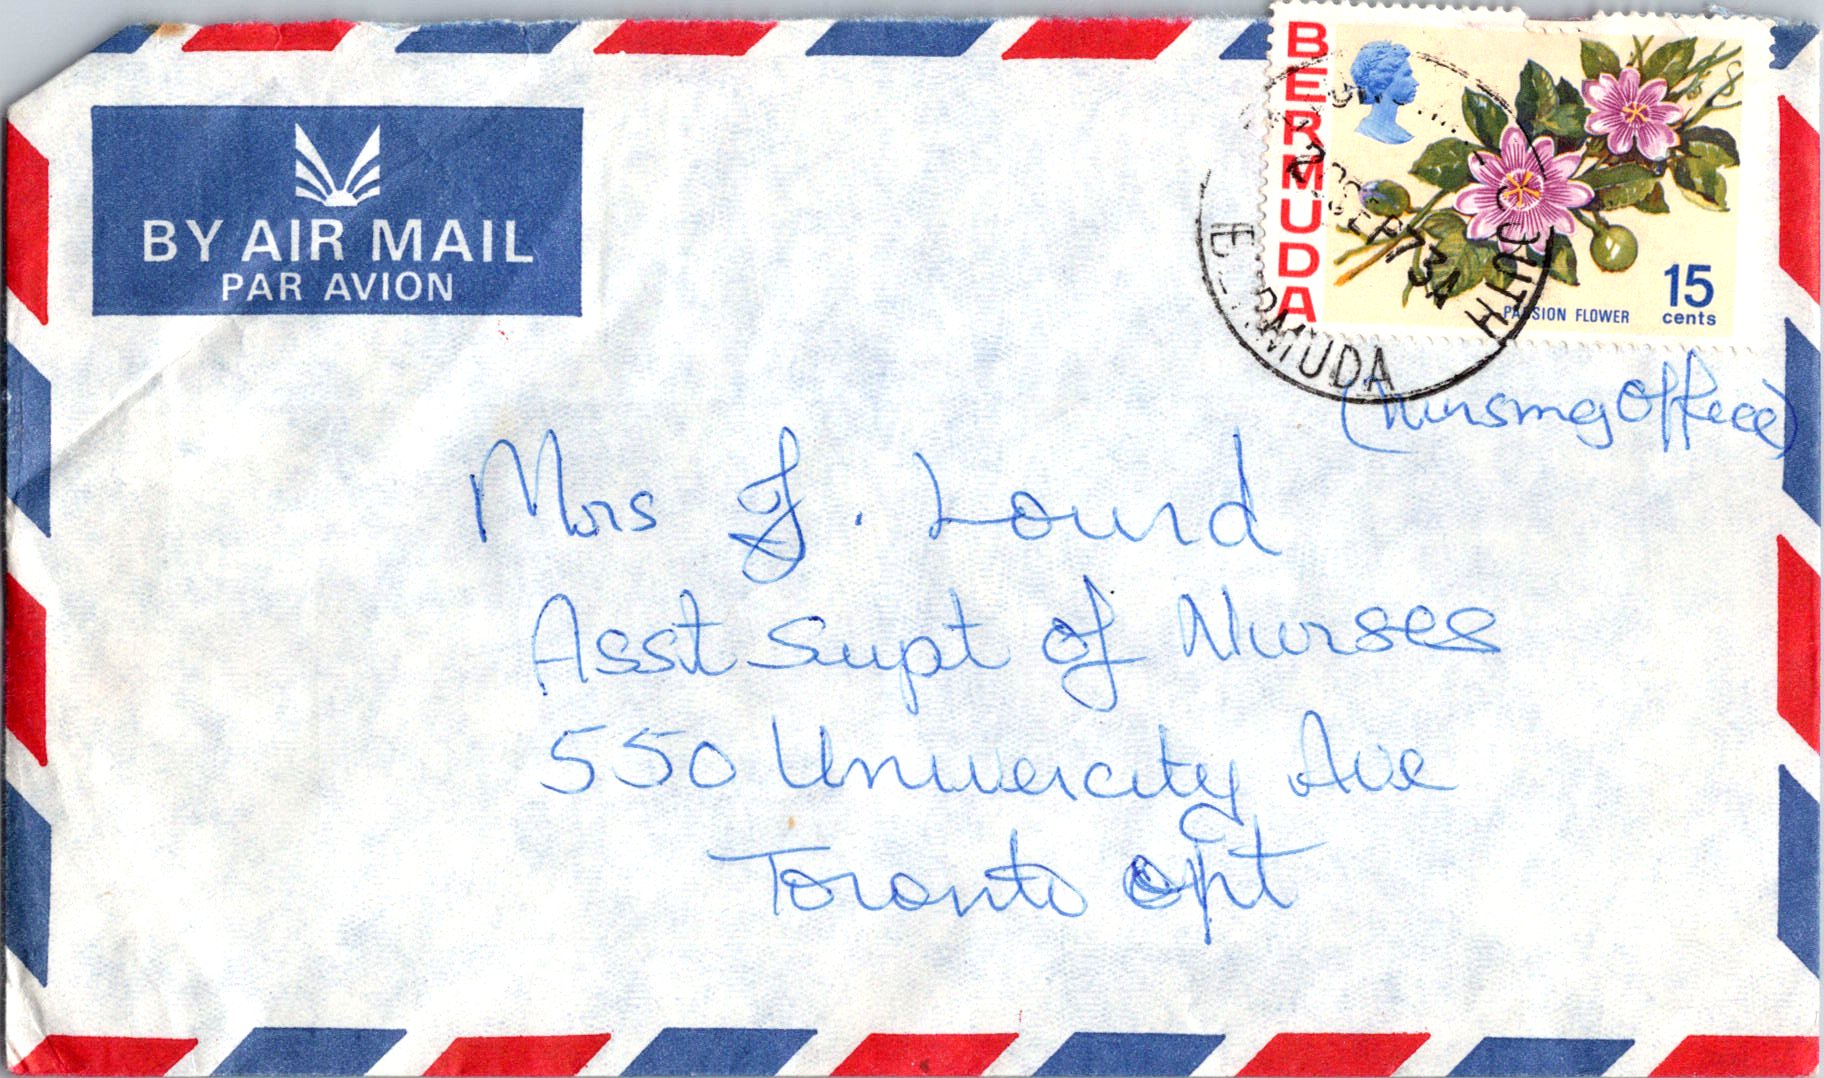 BY AIR MAIL
PAR AVION
BERMUDA
15
cents
PASSION FLOWER
SEP 73
SOUTH
BERMUDA
(Nursing Office)
Mrs J. Lourd
Asst Supt of Nurses
550 Univercity Ave
Toronto